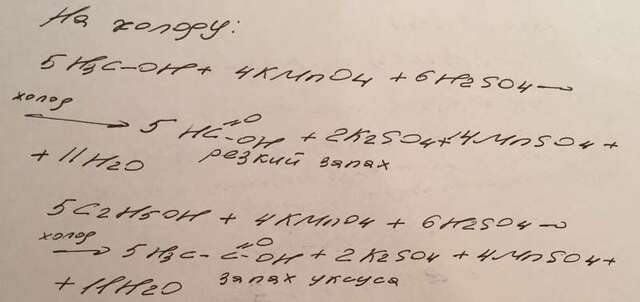 На холоду:
5H3C-OH + 4KMnO4 + 6H2SO4 →
холод → 5 HC(=O)-OH + 2K2SO4 + 4MnSO4 +
резкий запах
+ 11H2O
5C2H5OH + 4KMnO4 + 6H2SO4 →
холод → 5H3C-C(=O)-OH + 2K2SO4 + 4MnSO4 +
запах уксуса
+ 11H2O